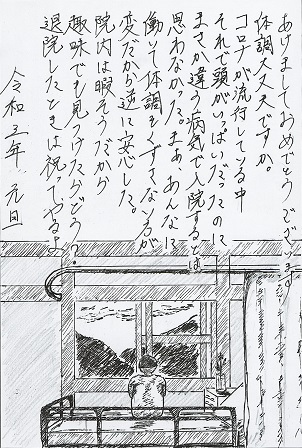 あけましておめでとうございます
体調大丈夫ですか。
コロナが流行している中
それで頭がいっぱいだったのに
まさか違う病気で入院するとは
思わなかった。まぁ、あんなに
働いて体調をくずさない方が
変だから逆に安心した。
院内は暇そうだから
趣味でも見つけたらどう?
退院したときは祝ってやるよ
令和三年 元旦